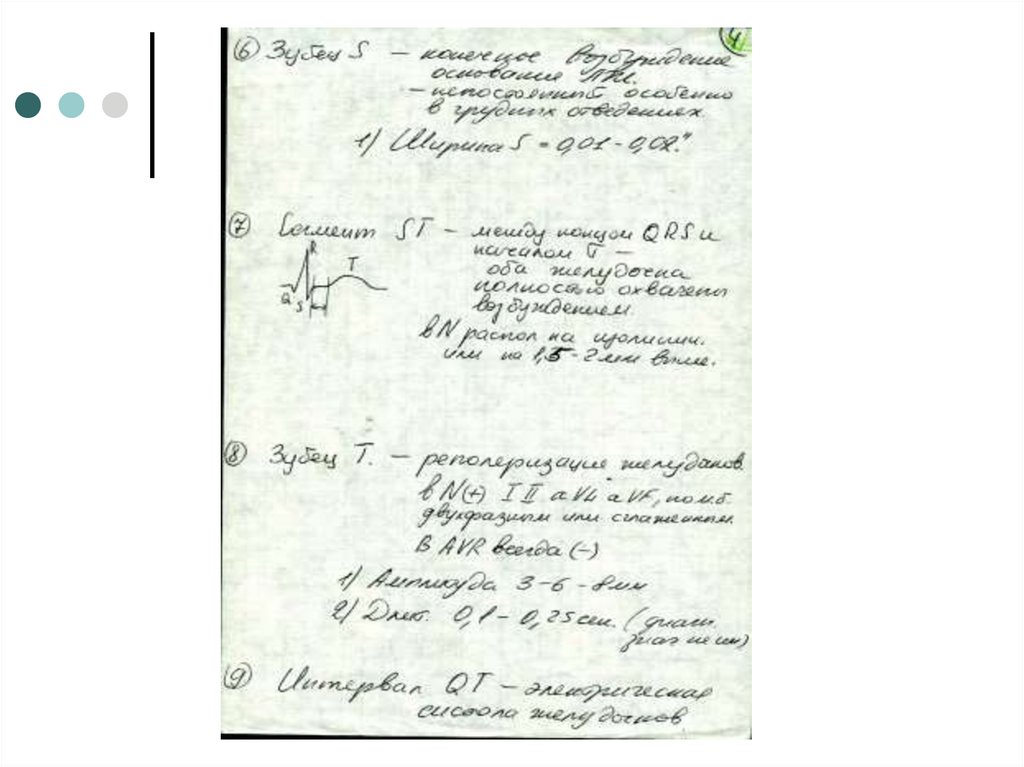 4
6 Зубец S — конечное возбуждение
основания ЛЖ.
— непостоянный особенно
в грудных отведениях.
1) Ширина S = 0,01 - 0,02"
7 Сегмент ST — между концом QRS и
началом T —
оба желудочка
полностью охвачены
возбуждением.
R
T
Q
S
в N распол на изолинии.
или на 1,5-2 мм выше.
8 Зубец T. — реполеризация желудочков
в N(+) I II aVL aVF, но м.б.
двухфазным или сглаженным.
В AVR всегда (-)
1) Амплитуда 3-6-8мм
2) Длит. 0,1 - 0,25 сек. (диагн.
знач не им)
9 Интервал QT — электрическая
систола желудочков